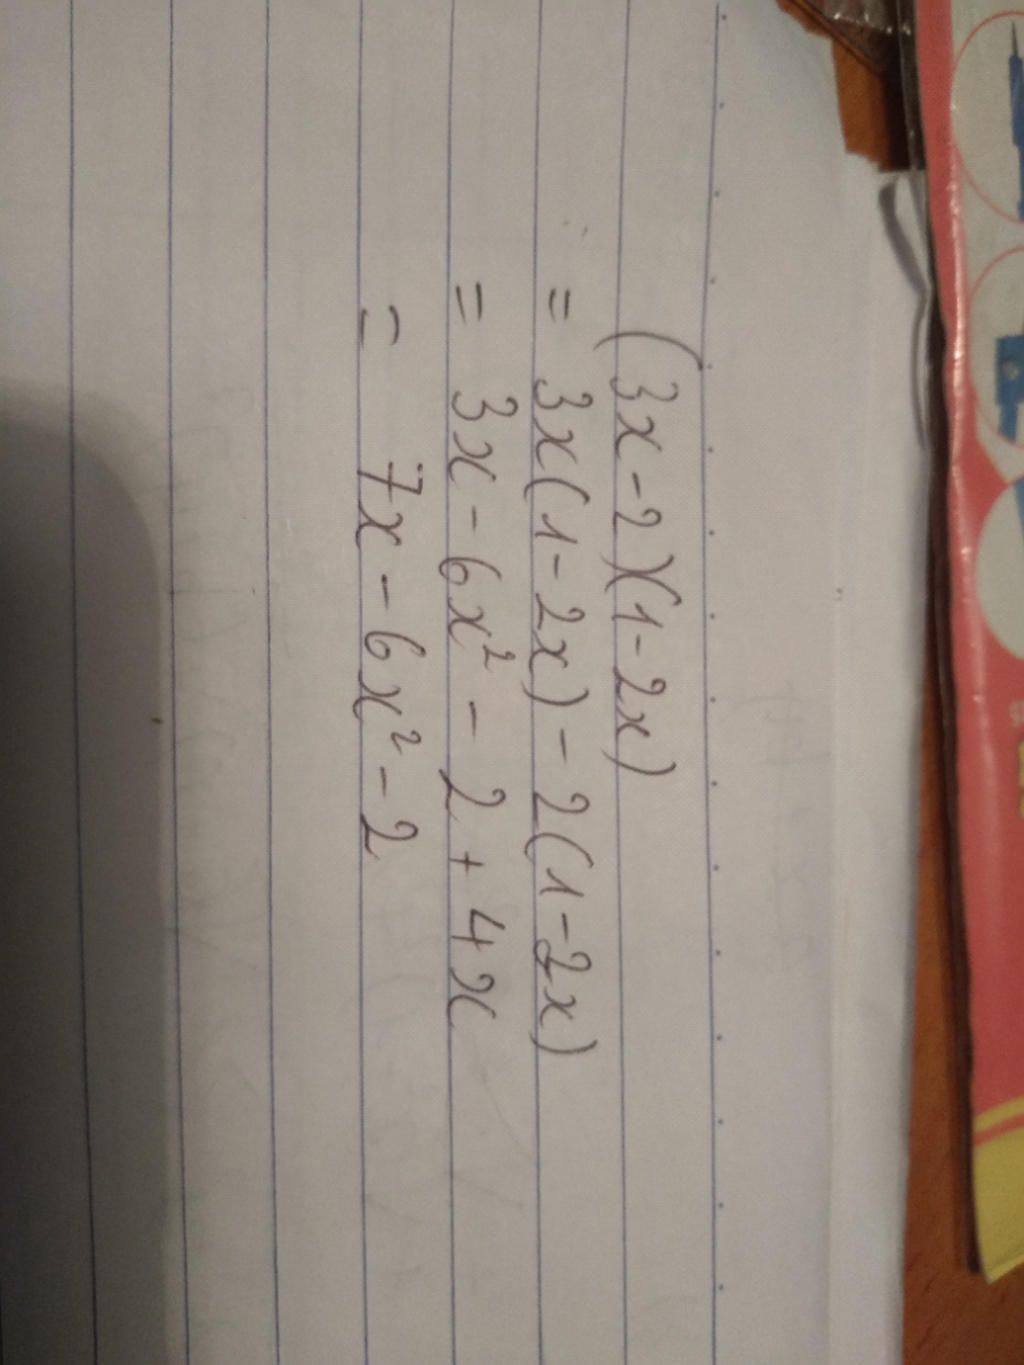 (3x-2)(1-2x)
= 3x(1-2x)-2(1-2x)
= 3x-6x²-2+4x
= 7x-6x²-2